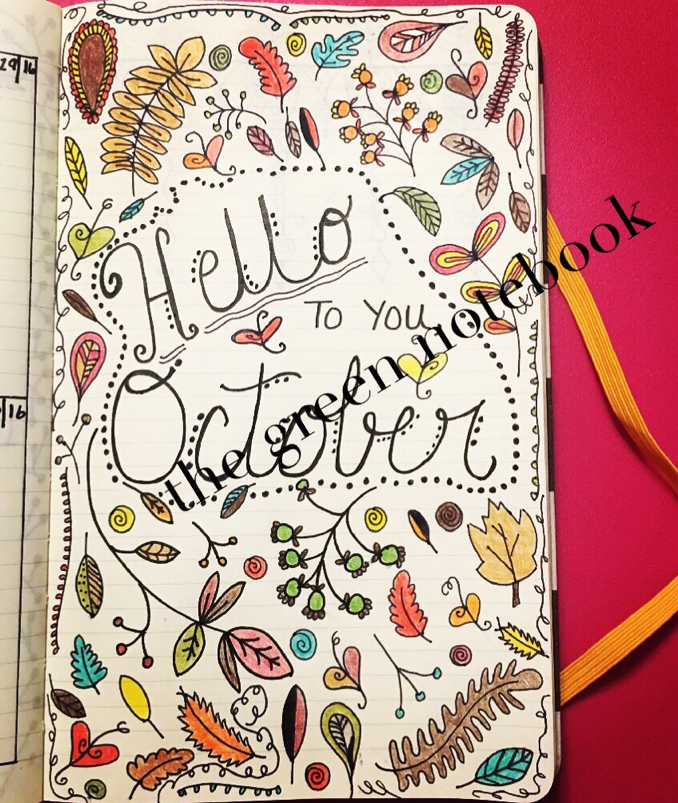 29/16
Hello
To You
October
/16
the green notebook